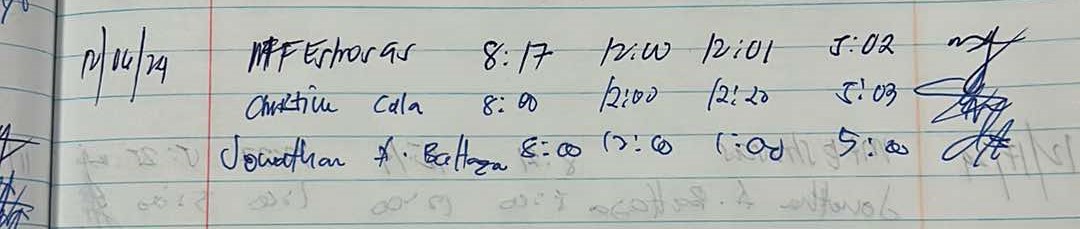 12/06/24 MF Estroras 8:17 12:00 12:01 5:02
Christine Cala 8:00 12:00 12:20 5:03
Jonathan A. Baltaza 8:00 12:00 1:00 5:00